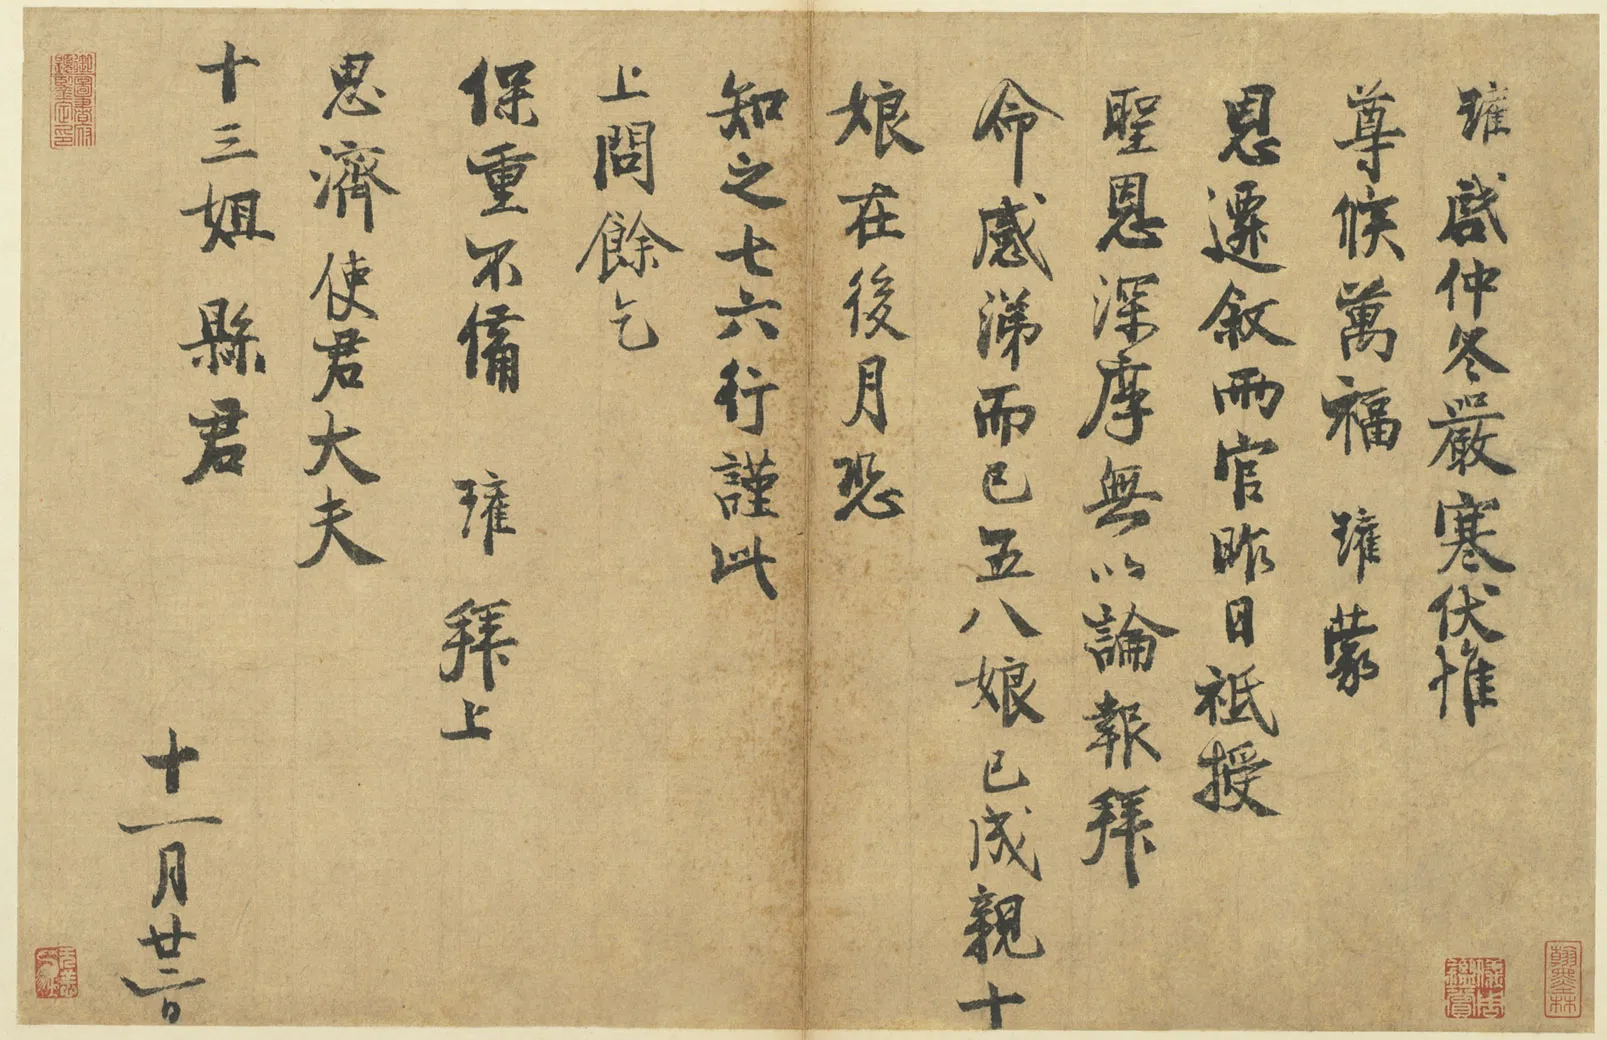 瓘啟仲冬嚴寒伏惟
尊候萬福 瓘蒙
恩遷敘兩官昨日祗授
聖恩深厚無以論報拜
命感涕而已五八娘已成親十
娘在後月恐
知之七六行謹此
上問餘乞
保重不備 瓘拜上
思濟使君大夫
十三姐縣君
十一月廿二日